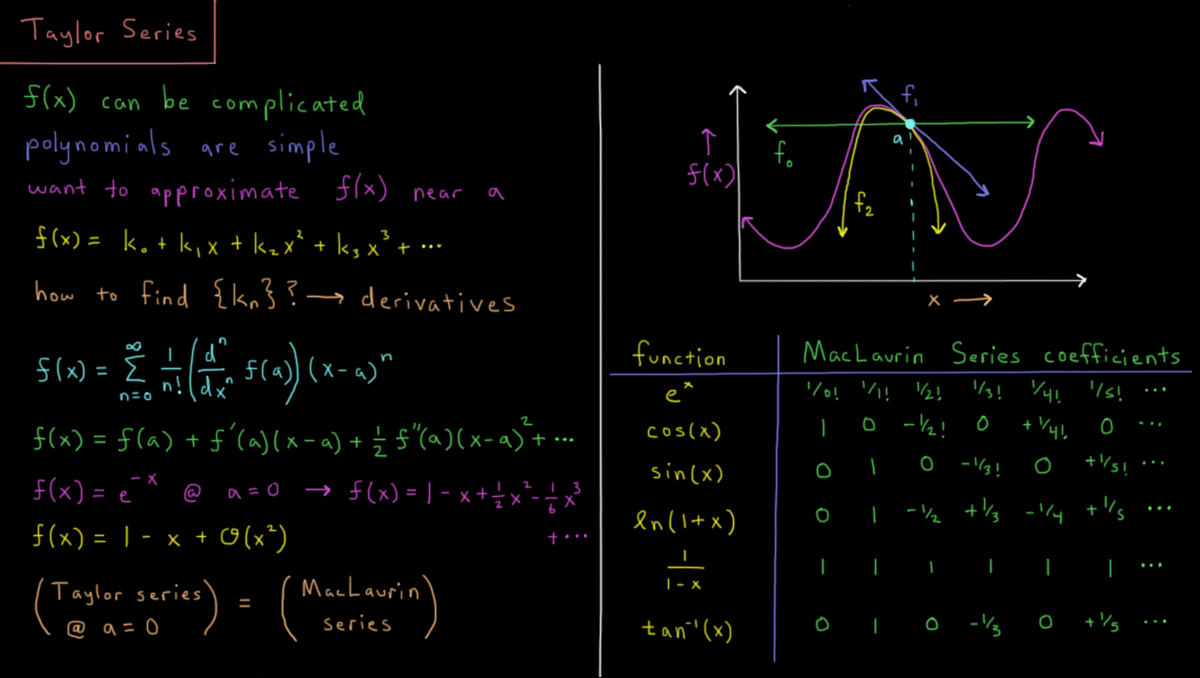 Taylor Series
f(x) can be complicated
polynomials are simple
want to approximate f(x) near a
f(x) = k₀ + k₁x + k₂x² + k₃x³ + ⋯
how to find {kₙ}? → derivatives
f(x) = ∑ₙ₌₀^∞ 1/n! (dⁿ/dxⁿ f(a)) (x-a)ⁿ
f(x) = f(a) + f'(a)(x-a) + ½ f''(a)(x-a)² + ⋯
f(x) = e⁻ˣ @ a=0 → f(x) = 1 - x + ½x² - ⅙x³
+ ⋯
f(x) = 1 - x + O(x²)
(Taylor series @ a=0) = (MacLaurin series)
f₁
a
f₀
↑
f(x)
f₂
x →
function MacLaurin Series coefficients
eˣ 1/0! 1/1! 1/2! 1/3! 1/4! 1/5! ⋯
cos(x) 1 0 -1/2! 0 +1/4! 0 ⋯
sin(x) 0 1 0 -1/3! 0 +1/5! ⋯
ln(1+x) 0 1 -1/2 +1/3 -1/4 +1/5 ⋯
1/(1-x) 1 1 1 1 1 1 ⋯
tan⁻¹(x) 0 1 0 -1/3 0 +1/5 ⋯